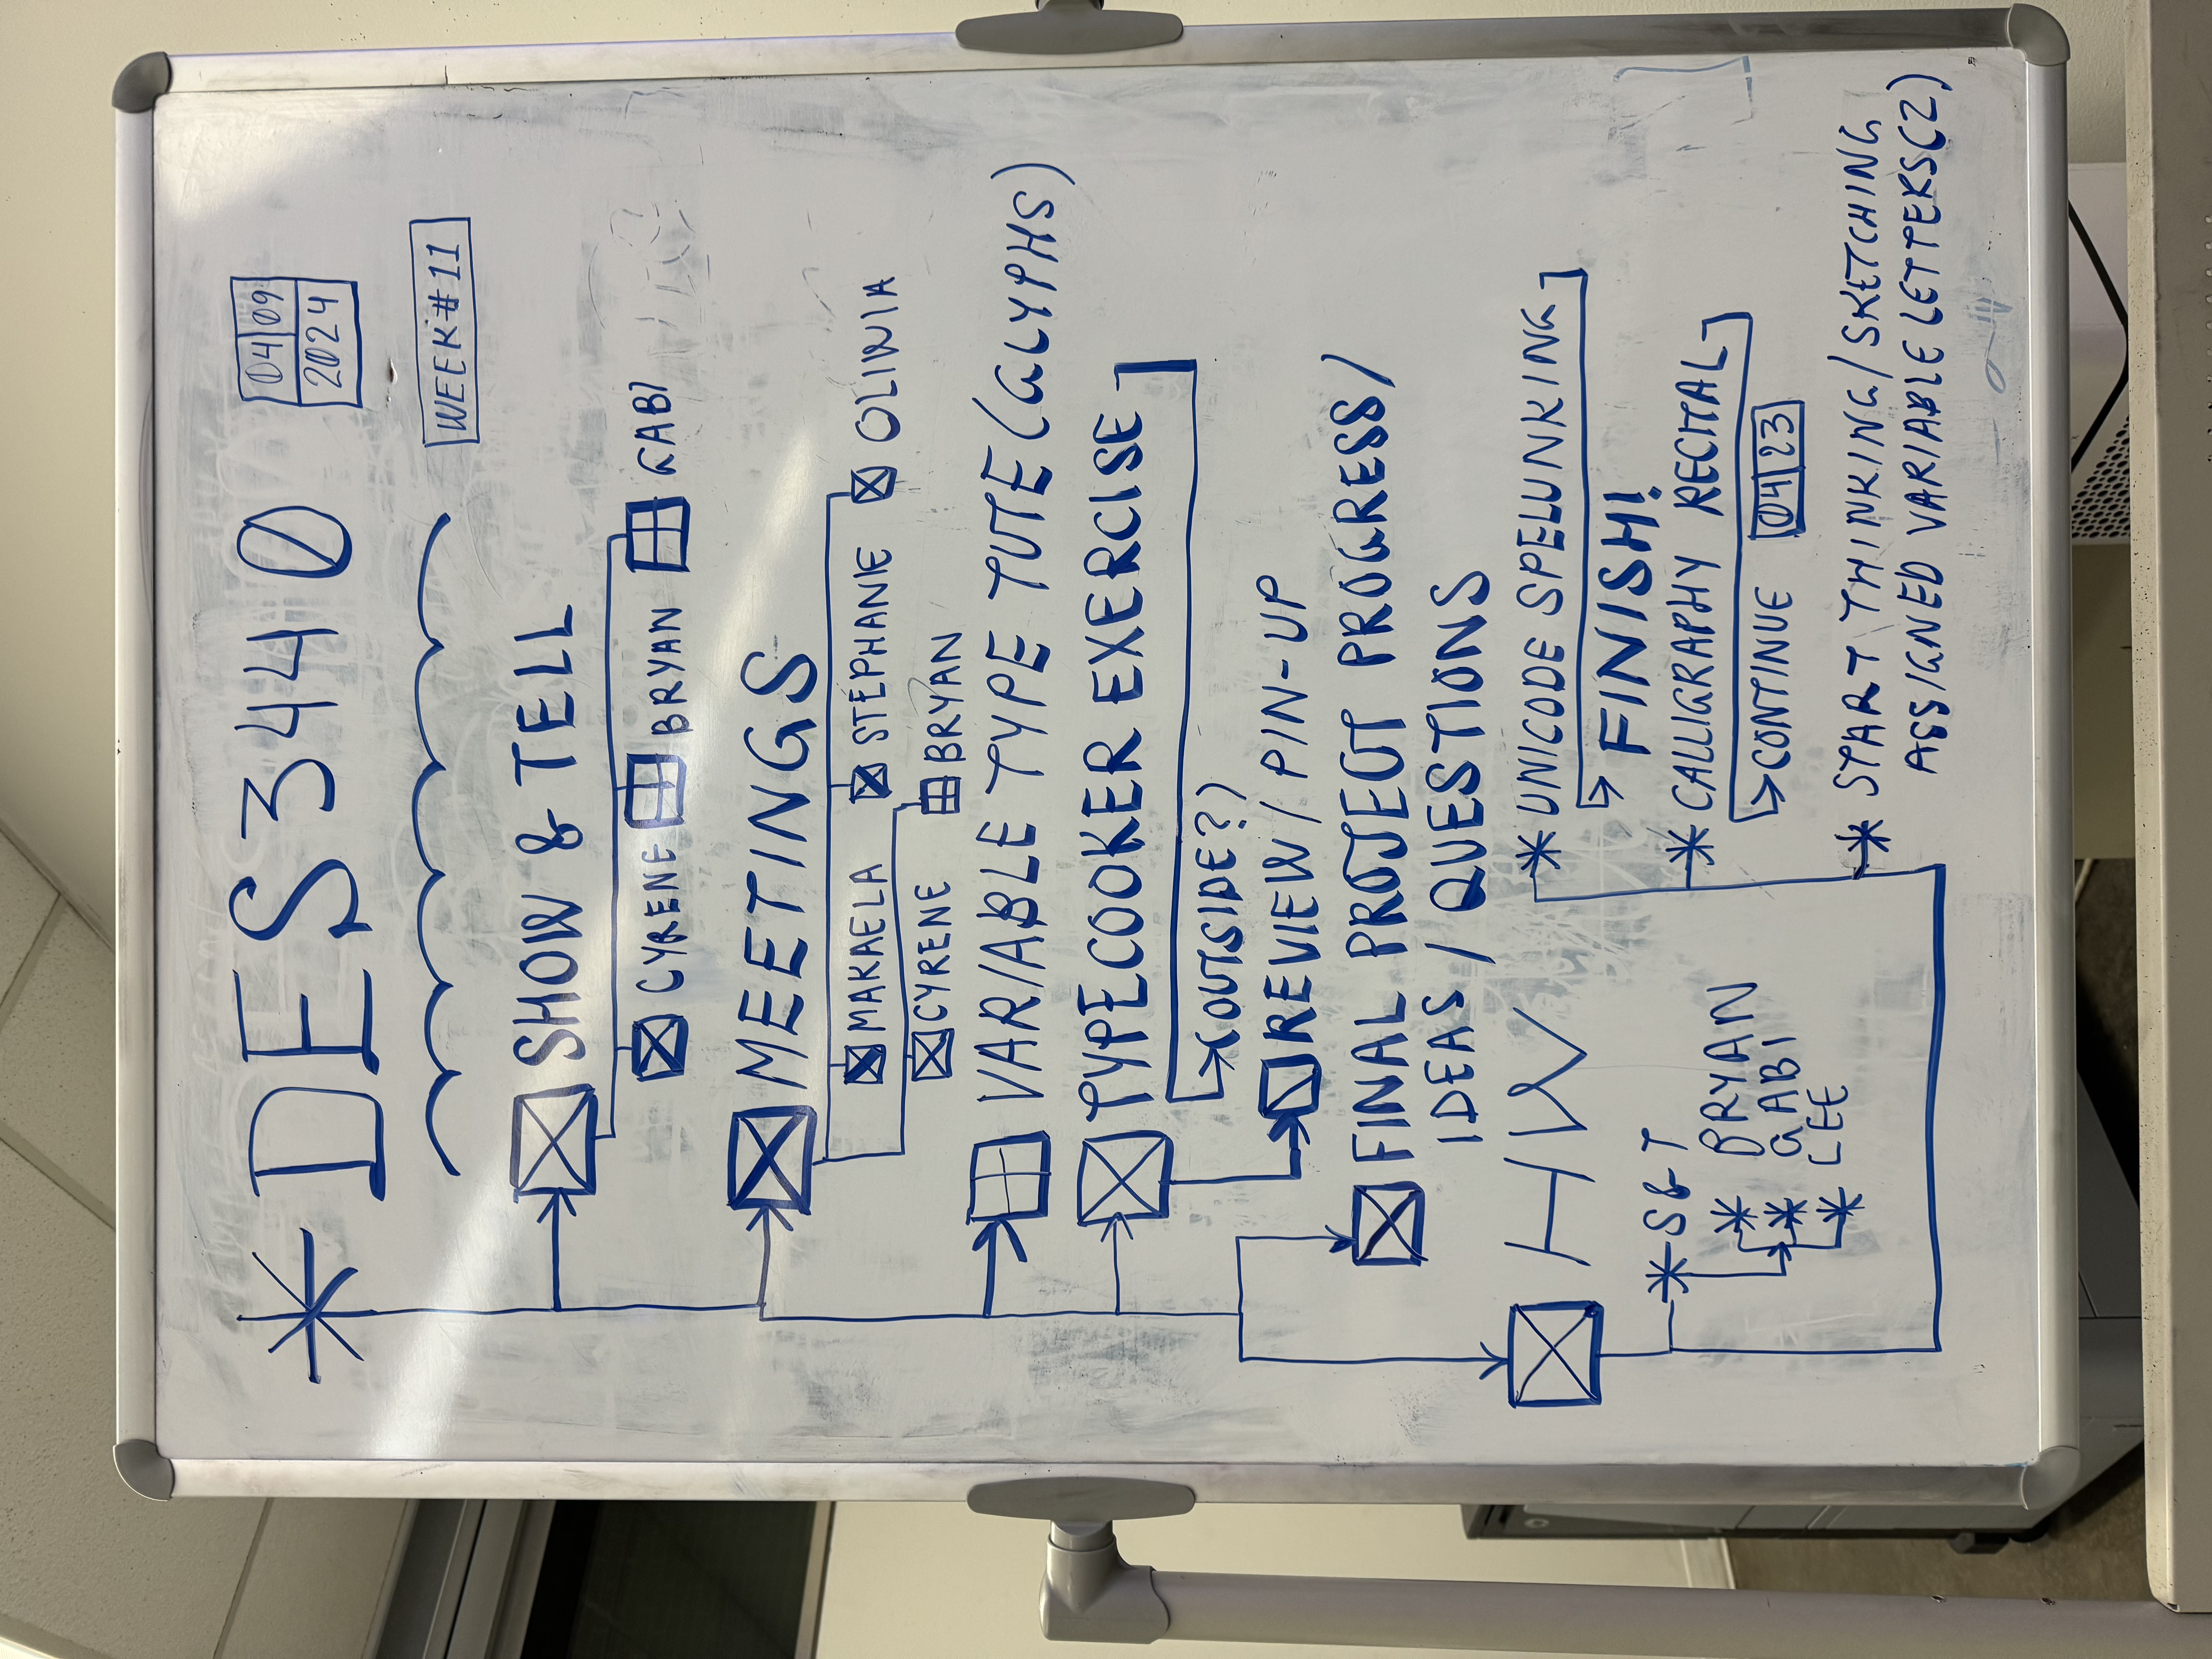 *DES3440
04 09
2024
WEEK#11
SHOW & TELL
CYRENE BRYAN GABI
MEETINGS
MAKAELA STEPHANIE OLIWIA
CYRENE BRYAN
VARIABLE TYPE TUTE (GLYPHS)
TYPECOOKER EXERCISE
(OUTSIDE?)
REVIEW / PIN-UP
FINAL PROJECT PROGRESS/
IDEAS / QUESTIONS
HW
*S&T
*BRYAN
*GABI
*LEE
*UNICODE SPELUNKING
FINISH!
*CALLIGRAPHY RECITAL
CONTINUE 04 23
*START THINKING/SKETCHING
ASSIGNED VARIABLE LETTERS(2)